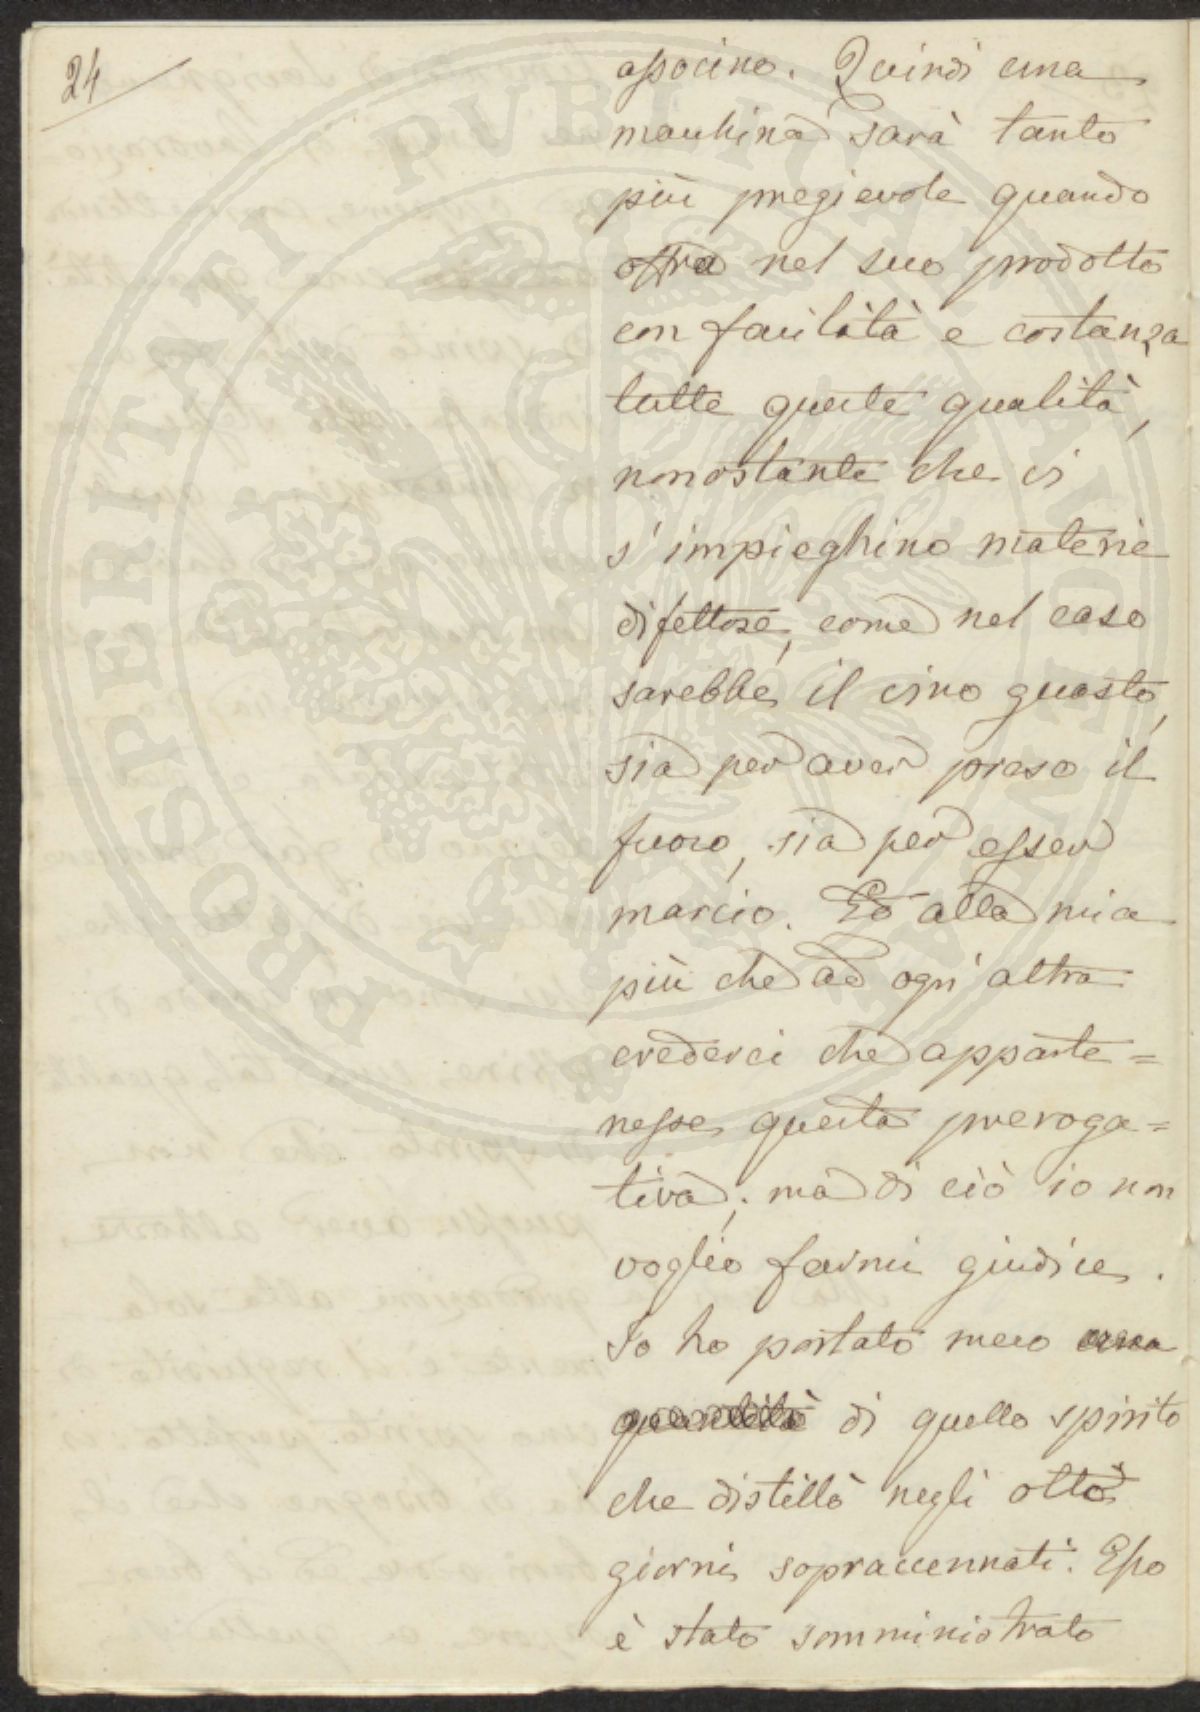 24
associno. Quindi una
macchina sarà tanto
più pregievole quando
offra nel suo prodotto
con facilità e costanza
tutte queste qualità,
nonostante che ci
s'impieghino materie
difettose, come nel caso
sarebbe il vino guasto,
sia per aver preso il
fuoco, sia per esser
marcio. Ed alla mia
più che ad ogn'altra
crederei che apparte=
nesse questa preroga=
tiva; ma di ciò io non
voglio farmi giudice.
Io ho portato meco una
quantità di quello spirito
che distillò negli otto
giorni sopraccennati. Esso
è stato somministrato
PROSPERITATI PUBLICAE